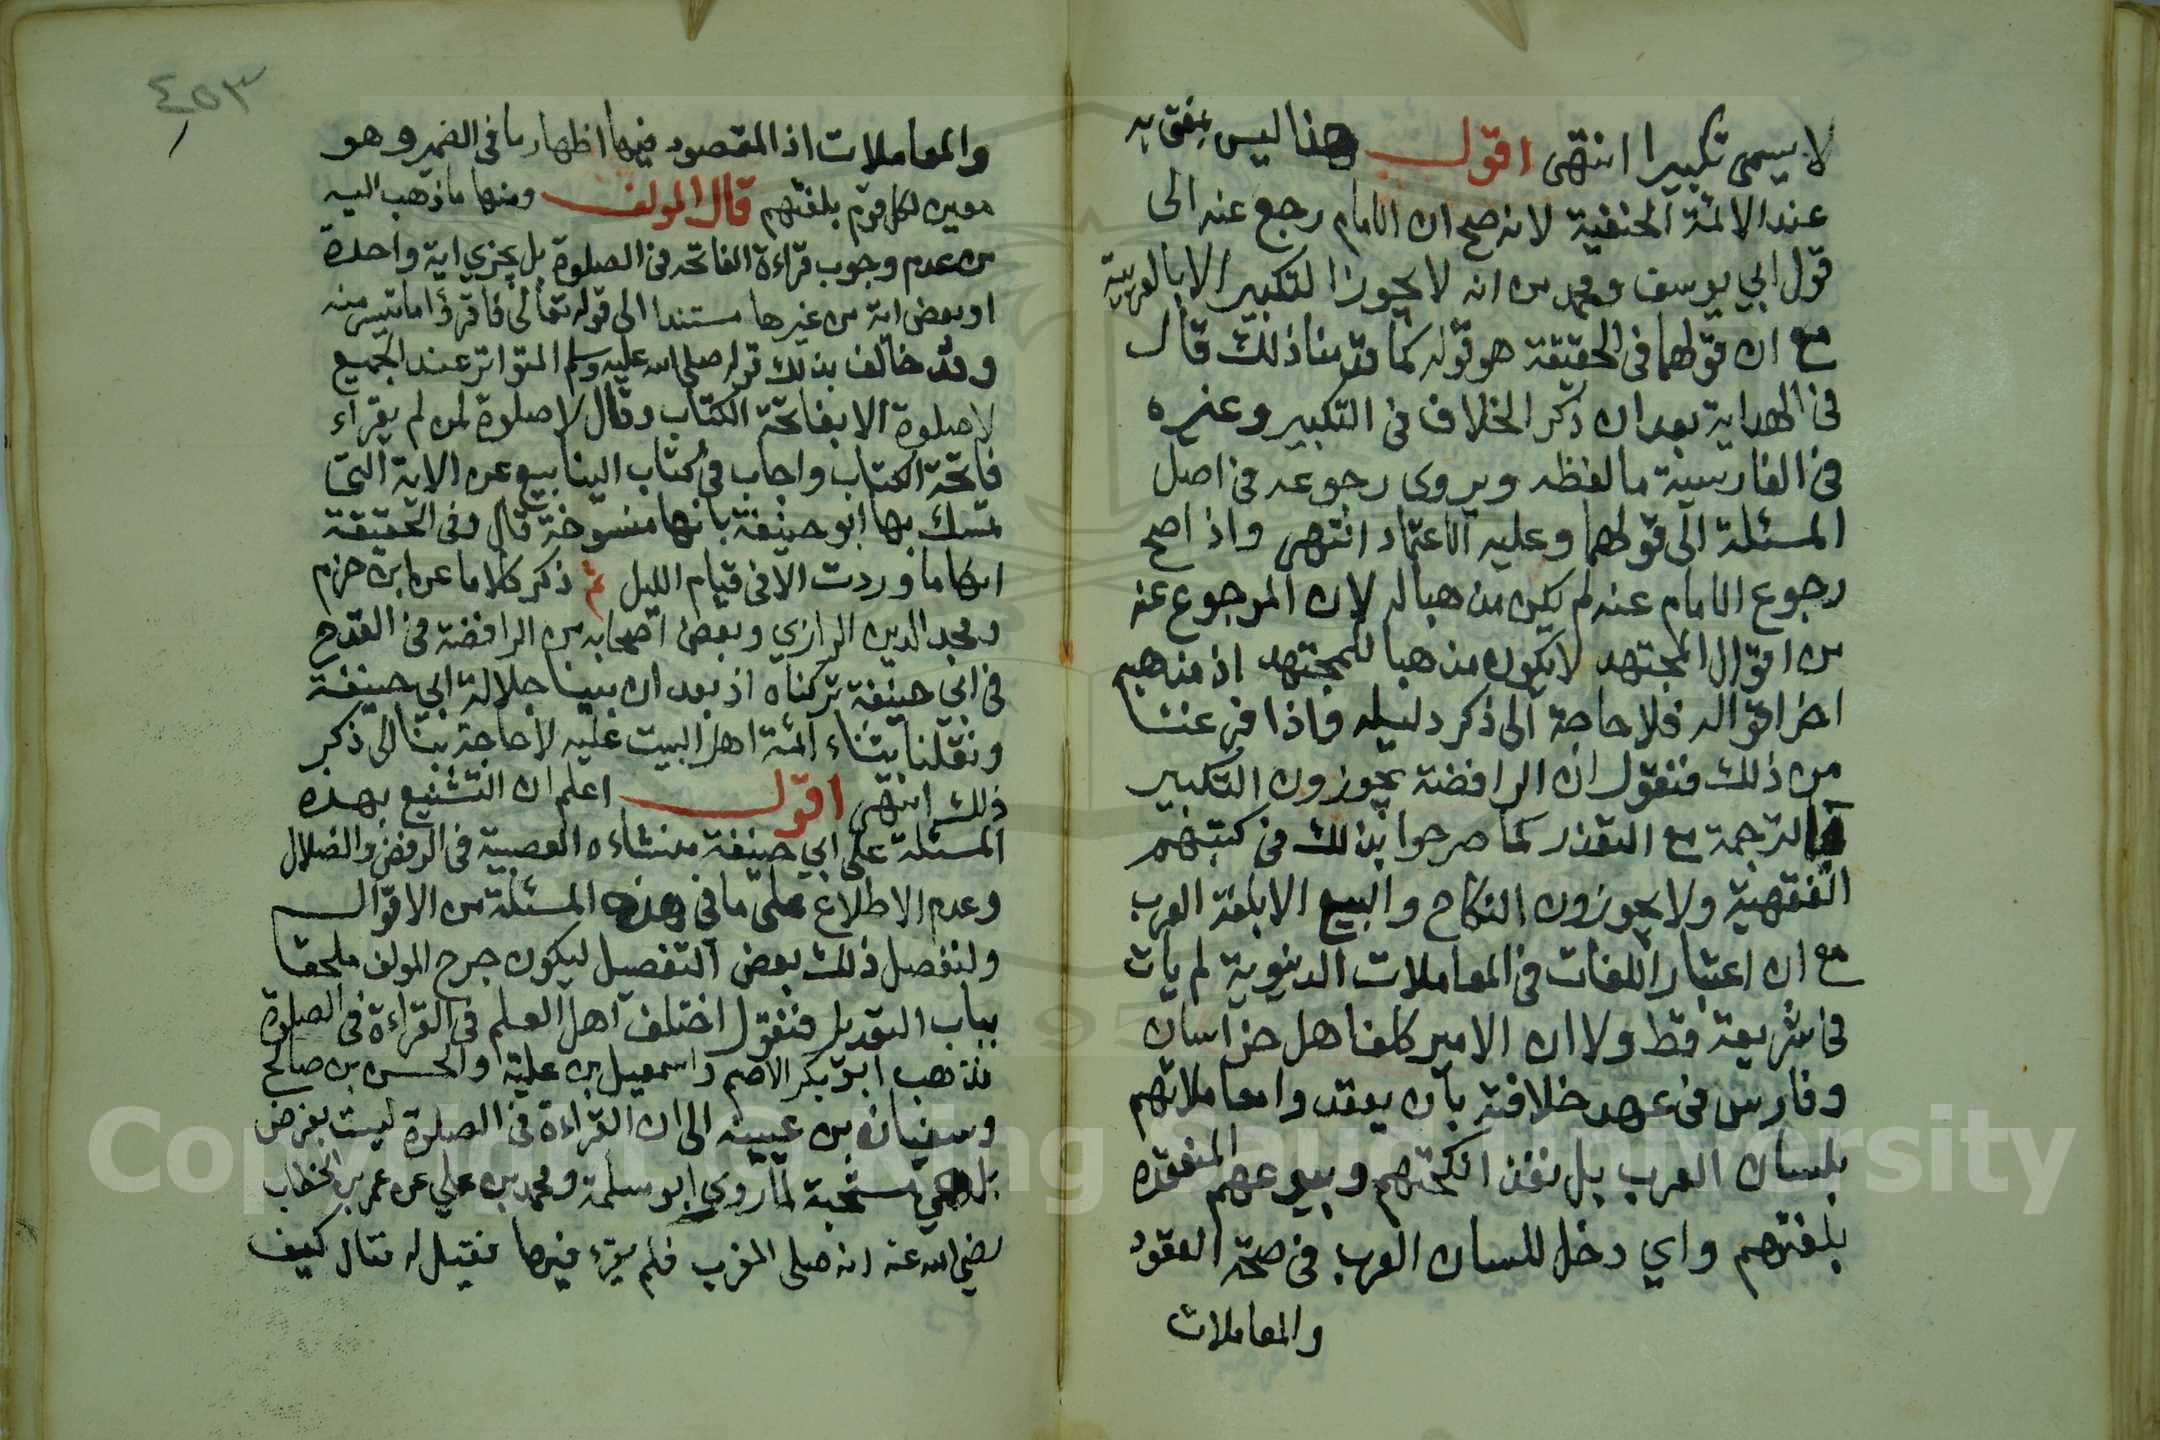 لا يسمى تكبيرا انتهى اقول هذا ليس بمفتى به
عند الائمة الحنفية لانه صح ان الامام رجع عنه الى
قول ابي يوسف ومحمد من انه لا يجوز التكبير الا بالعربية
مع ان قولهما في الحقيقة هو قوله كما قدمنا ذلك قال
في الهداية بعد ان ذكر الخلاف في التكبير وغيره
في الفارسية ما لفظه ويروى رجوعه في اصل
المسئلة الى قولهما وعليه الاعتماد انتهى واذا صح
رجوع الامام عنه لم يكن مذهبا له لان المرجوع عنه
من اقوال المجتهد لا يكون مذهبا للمجتهد اذ مذهبه
اخر اقواله فلا حاجة الى ذكر دليله فاذا فرغنا
من ذلك فنقول ان الرافضة يجوزون التكبير
بالترجمة مع التعذر كما صرحوا بذلك في كتبهم
الفقهية ولا يجوزون النكاح والبيع الا بلغة العرب
مع ان اعتبار اللغات في المعاملات الدنيوية لم يات
في شريعة قط ولا ان الامير كلف اهل خراسان
وفارس في عهد خلافته بان يعقدوا معاملاتهم
بلسان العرب بل نفذ انكحتهم وبيوعهم المنعقدة
بلغتهم واي دخل للسان العرب في صحة العقود
والمعاملات
٤٥٣
والمعاملات اذ المقصود فيها اظهار ما في الضمير وهو
معبر لكل قوم بلغتهم قال المولف ومنها ما ذهب اليه
من عدم وجوب قراءة الفاتحة في الصلوة بل يجزي اية واحدة
او بعض اية من غيرها مستندا الى قوله تعالى فاقرؤا ما تيسر منه
وقد خالف بذلك قوله صلى الله عليه وسلم المتواتر عند الجميع
لا صلوة الا بفاتحة الكتاب وقال لا صلوة لمن لم يقراء
فاتحة الكتاب واجاب في كتاب الينابيع عن الاية التي
تمسك بها ابو حنيفة بانها منسوخة قال وفي الحقيقة
انها ما وردت الا في قيام الليل ثم ذكر كلاما عن ابن حزم
ومجد الدين الرازي وبعض اصحابه من الرافضة في القدح
في ابي حنيفة تركناه اذ بعد ان بينا جلالة ابي حنيفة
ونقلنا بثناء ائمة اهل البيت عليه لا حاجة بنا الى ذكر
ذلك انتهى اقول اعلم ان التشنيع بهذه
المسئلة على ابي حنيفة منشاءه العصبية في الرفض والضلال
وعدم الاطلاع على ما في هذه المسئلة من الاقوال
ولنفصل ذلك بعض التفصيل ليكون جرح المولف ملحقا
بباب التعديل فنقول اختلف اهل العلم في القراءة في الصلوة
فذهب ابو بكر الاصم واسمعيل بن علية والحسن بن صالح
وسفيان بن عيينه الى ان القراءة في الصلوة ليست بفرض
بل هي مستحبة لما روي ابو سلمة ومحمد بن علي عن عمر بن الخطاب
رضي الله عنه انه صلى المغرب فلم يقرء فيها فقيل له فقال كيف
Copyright © King Saud University